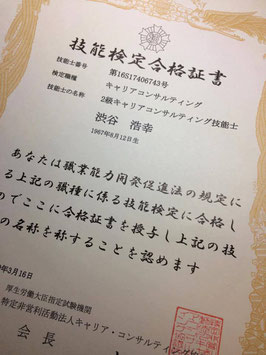 技能検定合格証書
技能士番号 第16S17406743号
検定職種 キャリアコンサルティング
技能士の名称 2級キャリアコンサルティング技能士
渋谷 浩幸
1967年8月12日生
あなたは職業能力開発促進法の規定に
る上記の職種に係る技能検定に合格し
のでここに合格証書を授与し上記の技
の名称を称することを認めます
年3月16日
厚生労働大臣指定試験機関
特定非営利活動法人キャリア・コンサルティング
会長